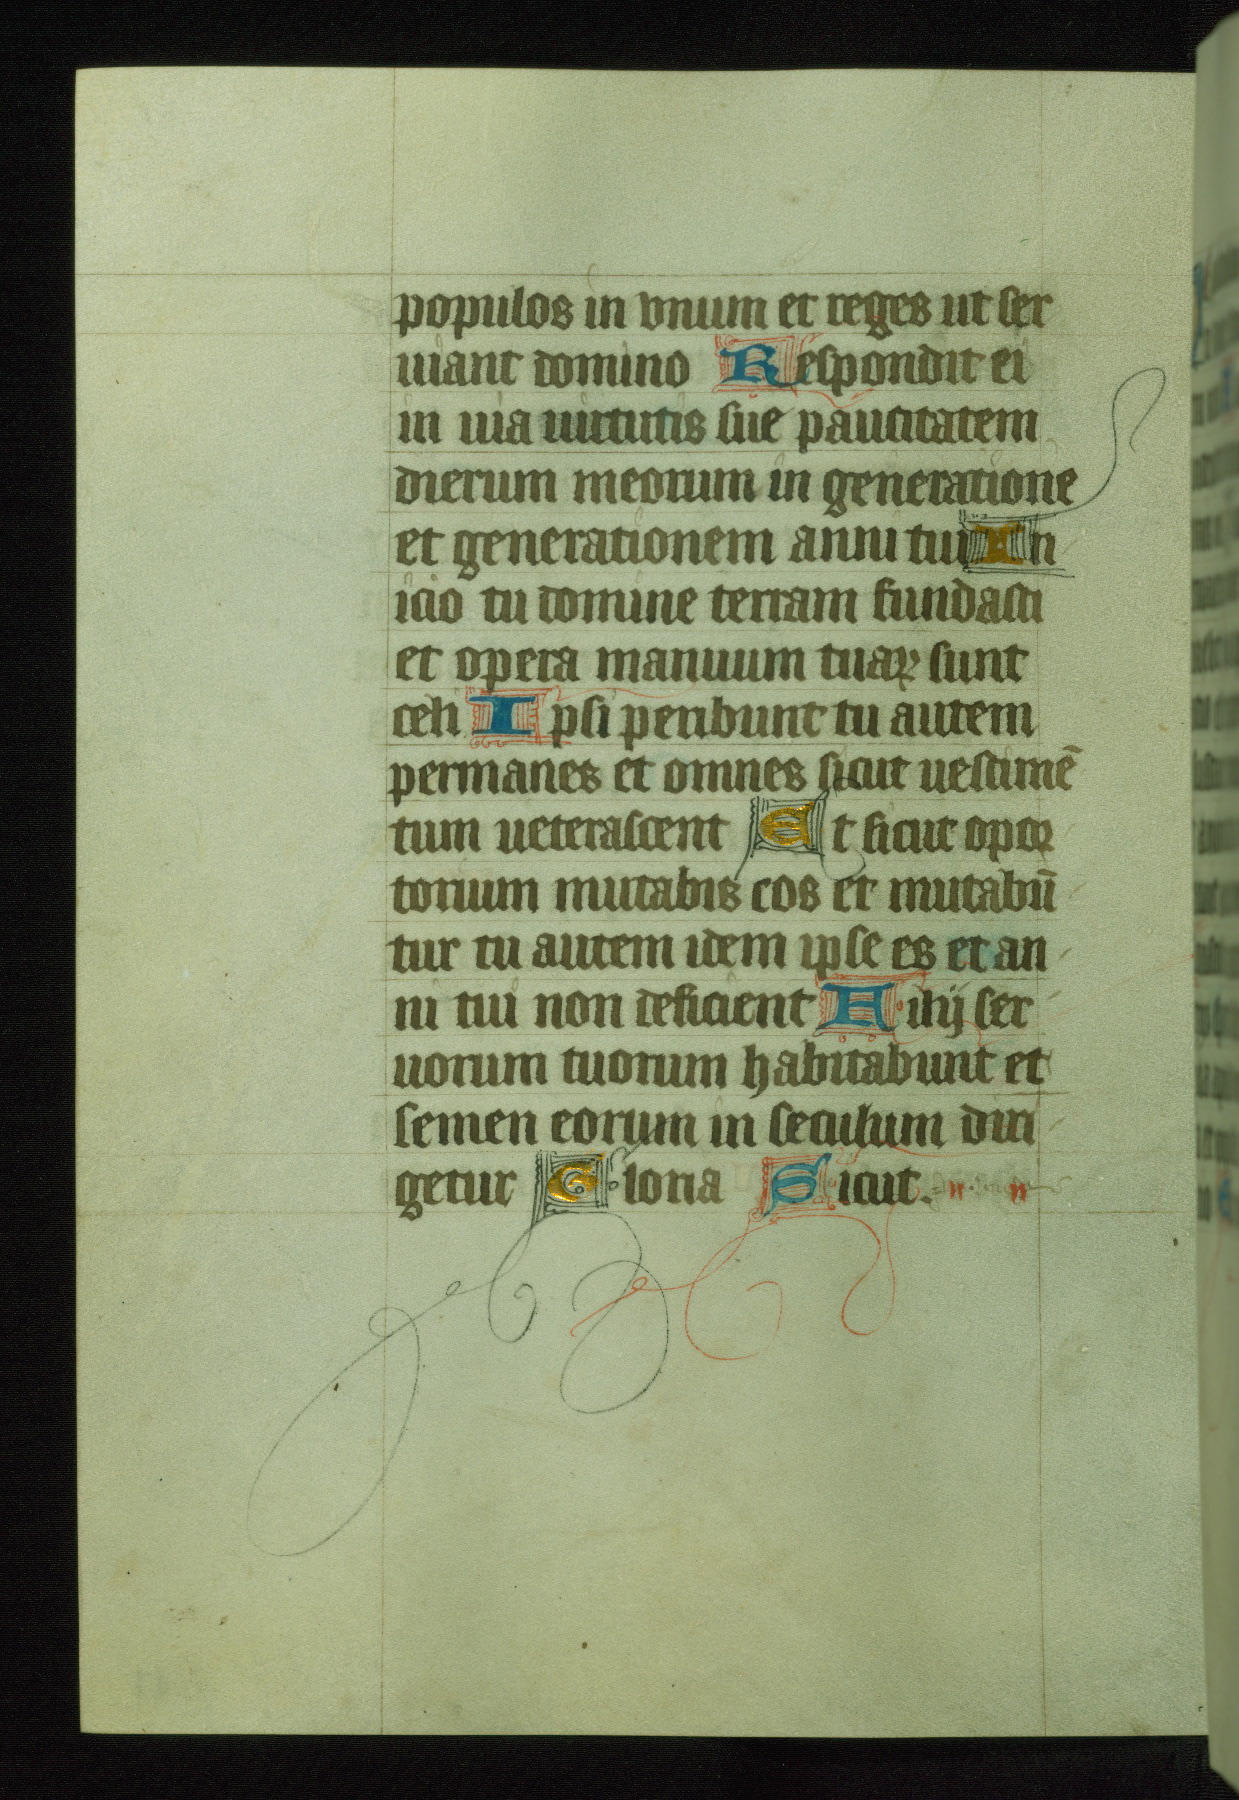 populos in vnum et reges ut ser
uiant domino Respondit ei
in uia uirtutis sue paucitatem
dierum meorum in generatione
et generationem anni tui In
icio tu domine terram fundasti
et opera manuum tuaꝝ sunt
celi Ipsi peribunt tu autem
permanes et omnes sicut uestimē
tum ueterascent Et sicut opor
torium mutabis eos et mutabūt
tur tu autem idem ipse es et an
ni tui non deficient Filij ser
uorum tuorum habitabunt et
semen eorum in seculum diri
getur Gloria Sicut.